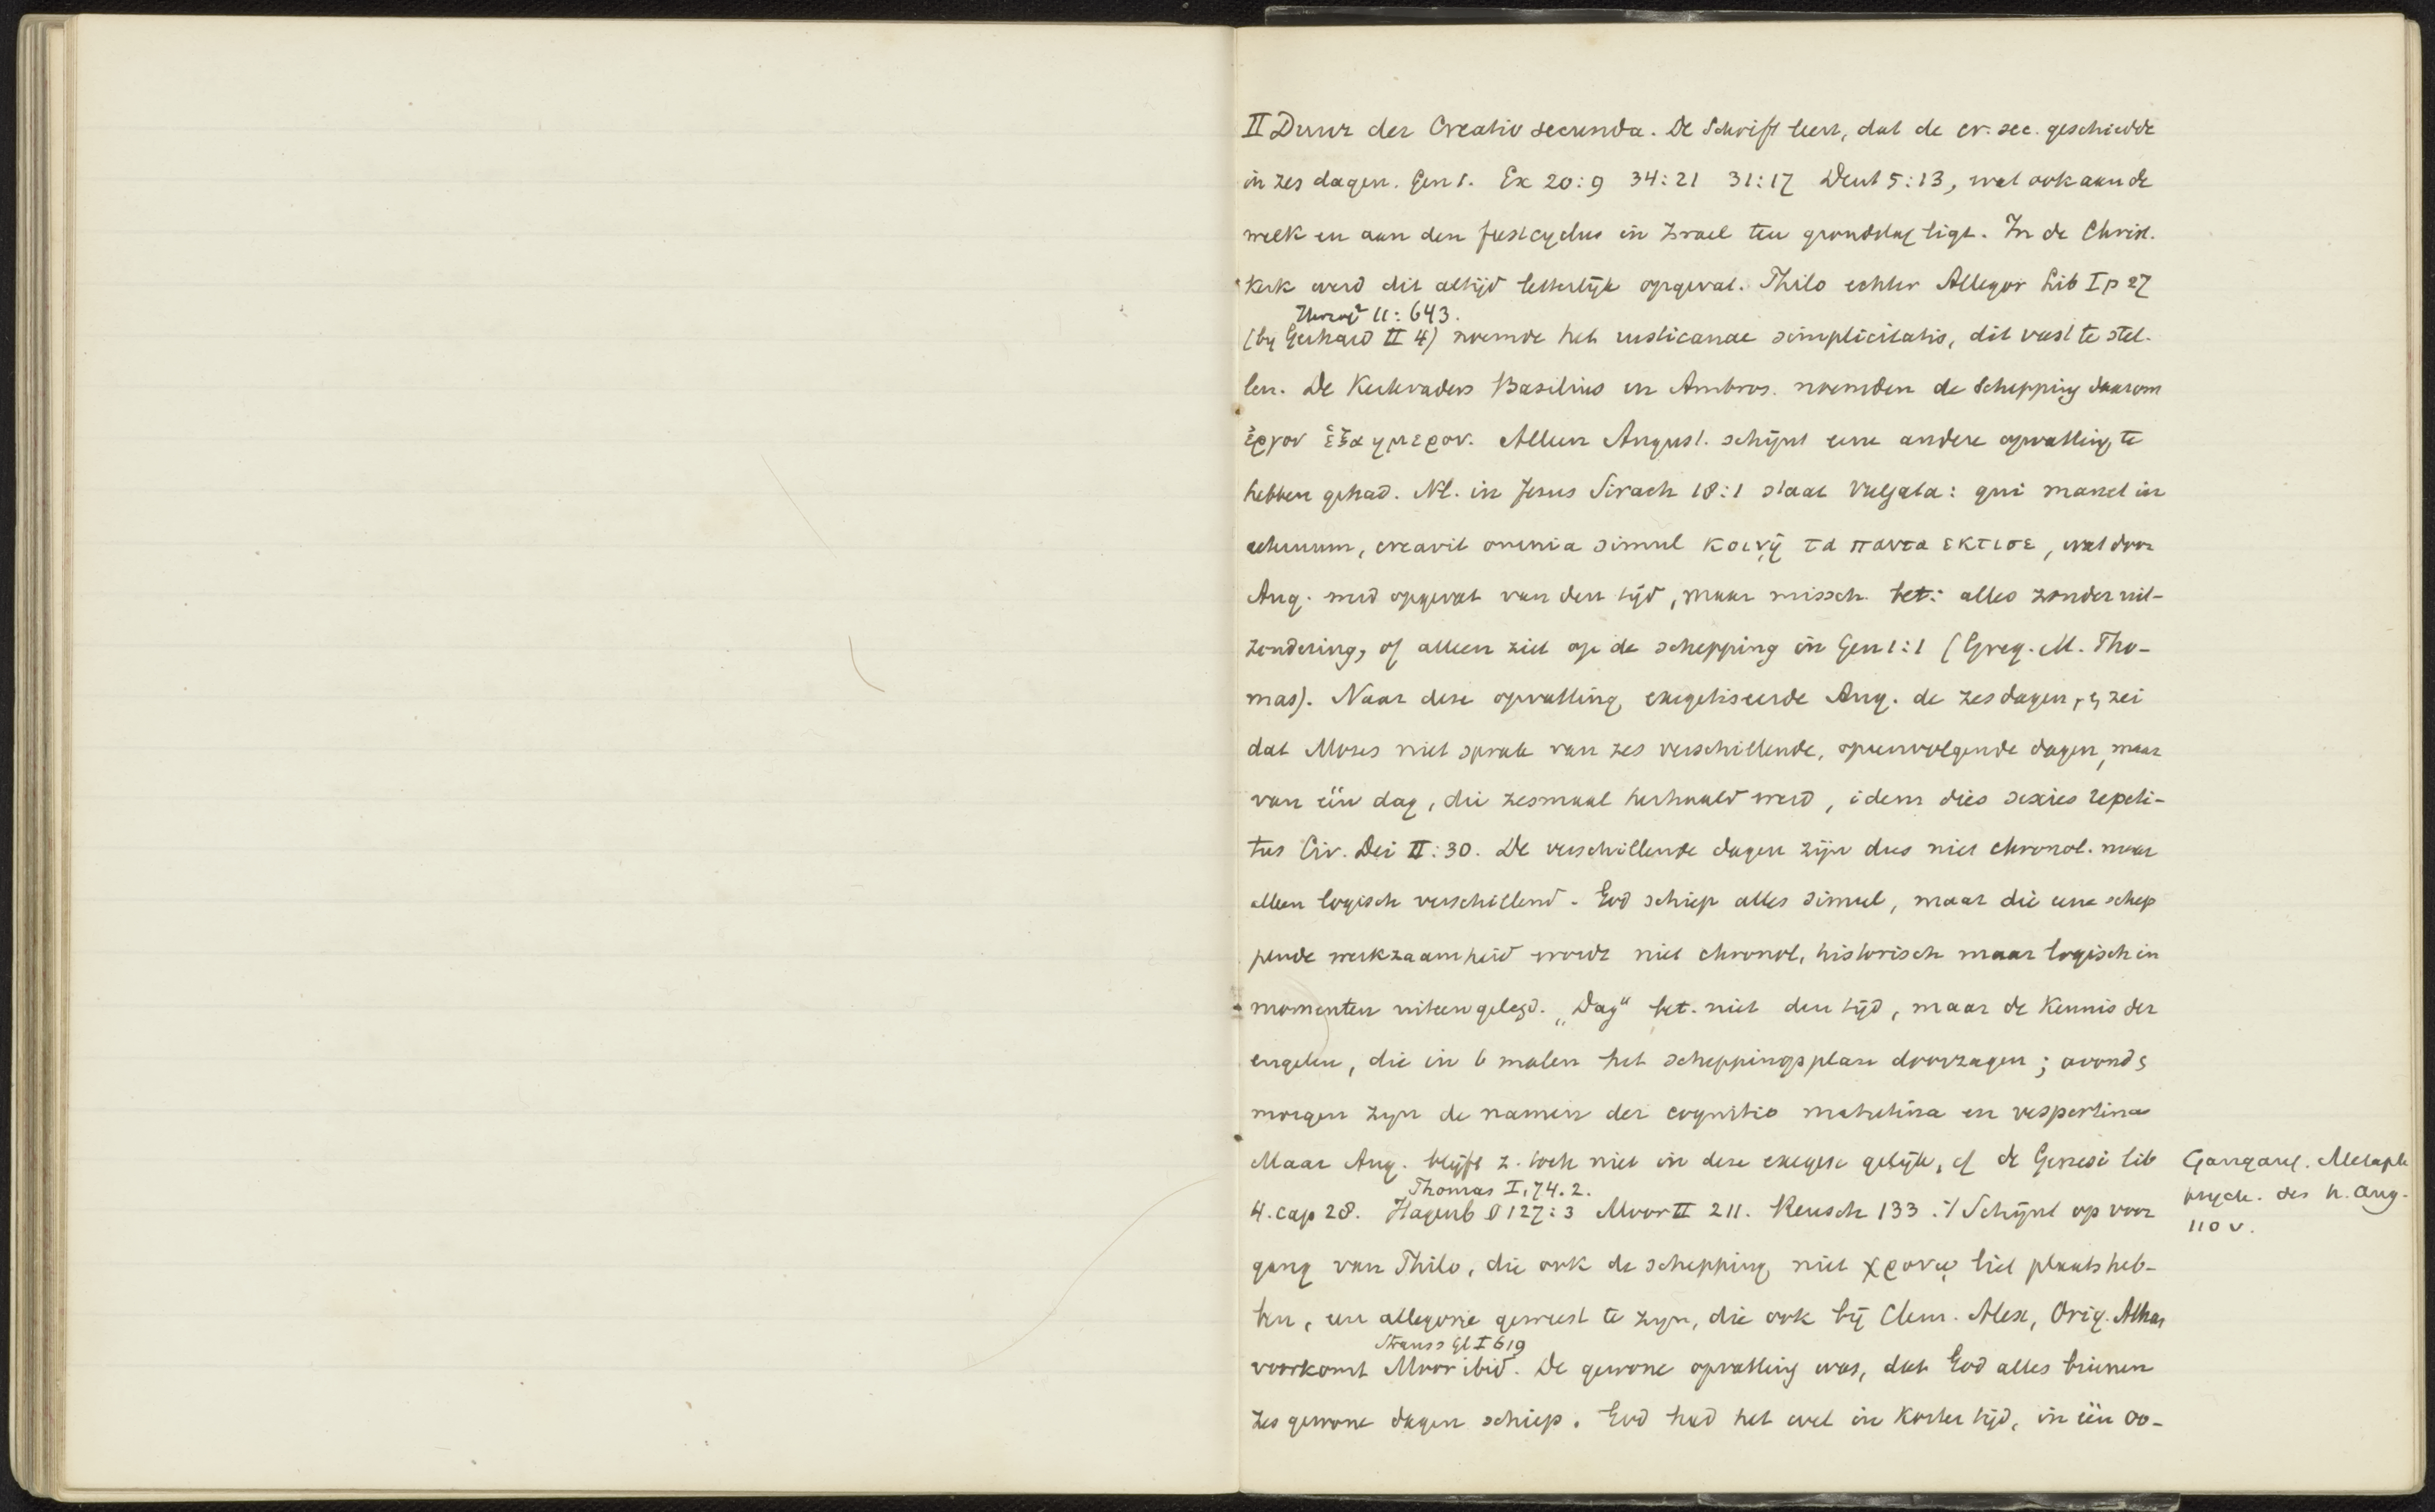 II Duur der Creatio secunda. De Schrift leert, dat de cr. sec. geschiedde
in zes dagen. Gen 1. Ex 20:9 34:21 31:17 Deut 5:13, wat ook aan de
week en aan den feestcyclus in Israel ten grondslag ligt. In de Christ.
Kerk werd dit altijd letterlijk opgevat. Philo echter Allegor Lib I p 27
11:643.
(by Gerhard II 4) noemde het rusticanae simplicitatis, dit vast te stel-
len. De Kerkvaders Basilius en Ambros. noemden de Schepping daarom
ἐργον ἑξαημερον. Alleen August. schijnt eene andere opvatting te
hebben gehad. Nl. in Jesus Sirach 18:1 staat Vulgata: qui manet in
aeternum, creavit omnia simul κοινῃ τα παντα εκτισε, wat door
Aug. werd opgevat van den tijd, maar missch. bet: alles zonder uit-
zondering, of alleen ziet op de schepping in Gen 1:1 (Greg. M. Tho-
mas). Naar deze opvatting exegetiseerde Aug. de zes dagen, en zei
dat Mozes niet sprak van zes verschillende, opeenvolgende dagen, maar
van één dag, die zesmaal herhaald werd, idem dies sexies repeti-
tus Civ. Dei II:30. De verschillende dagen zijn dus niet chronol. maar
alleen logisch verschillend. God schiep alles simul, maar die eene schep
pende werkzaamheid wordt niet chronol, historisch maar logisch in
momenten uiteengelegd. „Dag“ bet. niet den tijd, maar de Kennis der
engelen, die in 6 malen het scheppingsplan doorzagen; avond en
morgen zyn de namen der cognitio matutina en vespertina
Maar Aug. blijft z. toch niet in deze exegese gelijk, cf de Genesi lib
Thomas I, 74. 2.
4. cap 28. Hagenb § 127:3 Moor II 211. Reusch 133. Schijnt op voor
gang van Philo, die ook de schepping niet χρονῳ liet plaats heb-
ben, een allegorie geweest te zyn, die ook bij Clem. Alex, Orig. Athan
Strauss Gl I 619
voorkomt Moor ibid. De gewone opvatting was, dat God alles binnen
zes gewone dagen schiep. God had het wel in korter tijd, in één oo-
Gangauf. Metaph
psych. des h. Aug.
110 v.